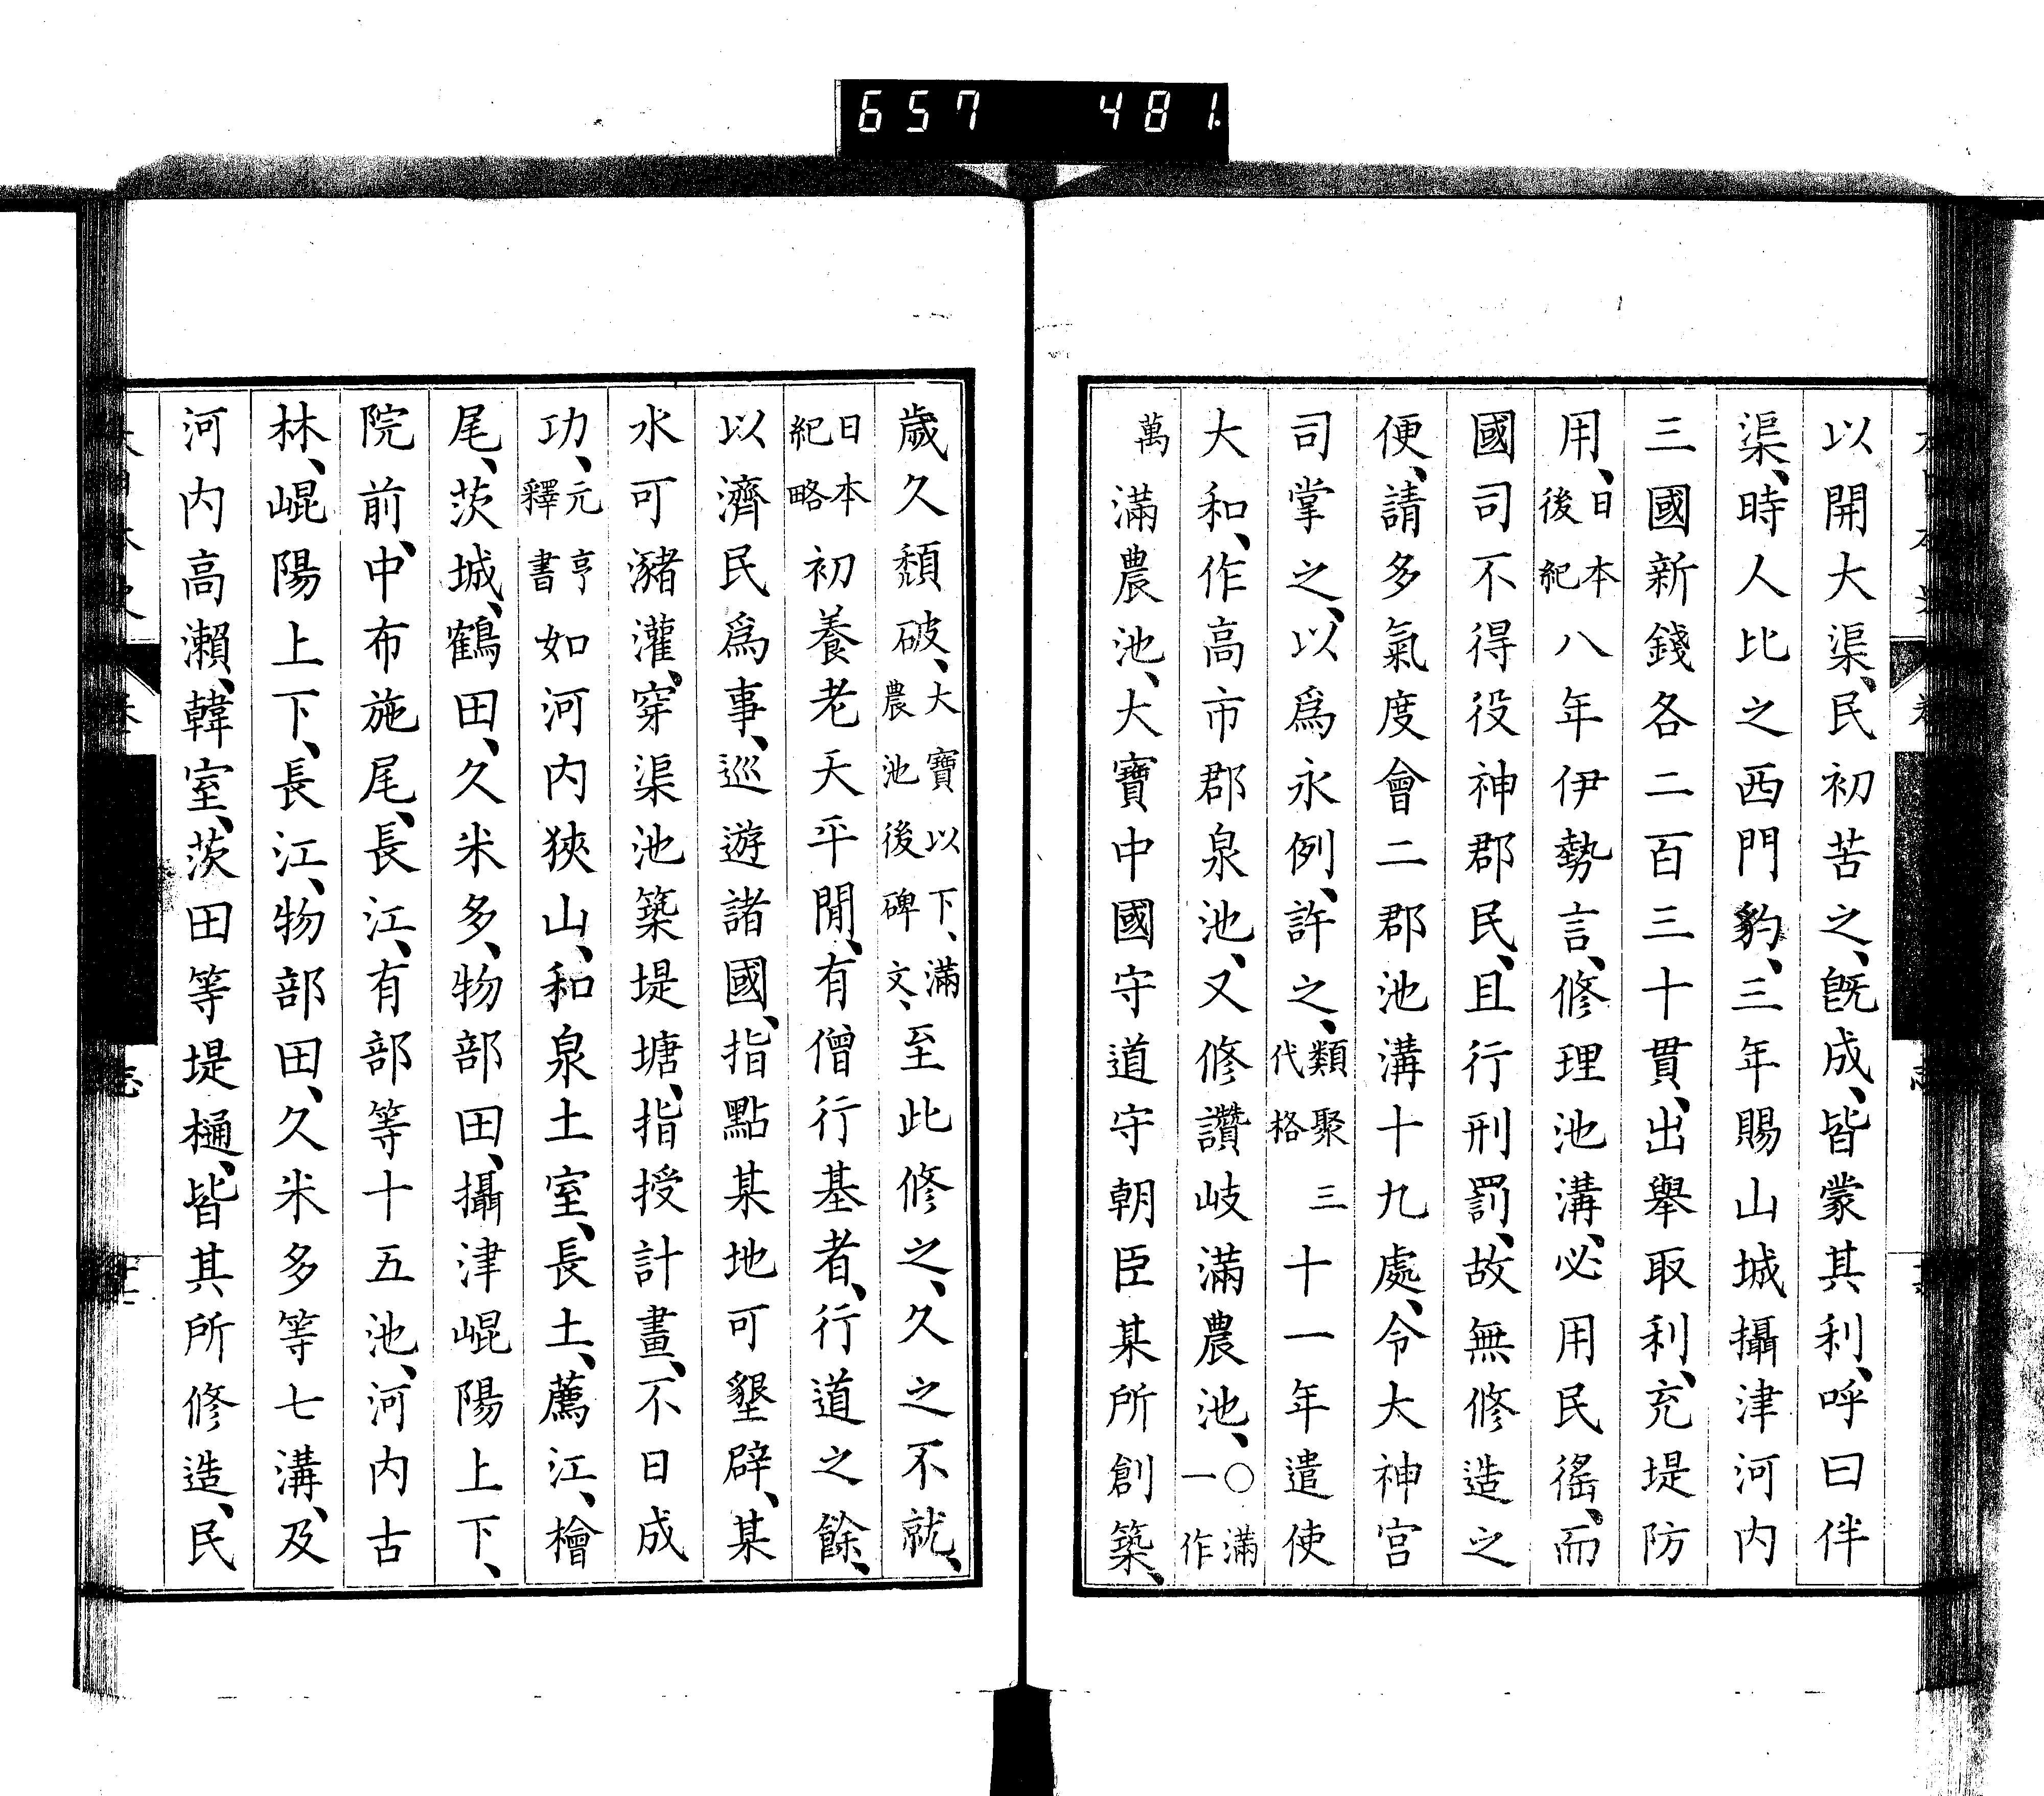 657 481
以開大渠、民初苦之、旣成、皆蒙其利、呼曰伴
渠、時人比之西門豹、三年賜山城攝津河内
三國新錢各二百三十貫、出擧取利、充堤防
用、日本後紀八年伊勢言、修理池溝、必用民徭、而
國司不得役神郡民、且行刑罰、故無修造之
便、請多氣度會二郡池溝十九處、令大神宮
司掌之、以爲永例、許之、類聚三代格十一年遣使
大和、作高市郡泉池、又修讚岐滿農池、○滿一作
萬滿農池、大寶中國守道守朝臣某所創築、
歲久頽破、大寶以下、滿農池後碑文、至此修之、久之不就、
日本紀略初養老天平間、有僧行基者、行道之餘、
以濟民爲事、巡遊諸國、指點某地可墾辟、某
水可瀦灌、穿渠池築堤塘、指授計畫、不日成
功、元亨釋書如河内狹山、和泉土室、長土、薦江、檜
尾、茨城、鶴田、久米多、物部田、攝津崐陽上下、
院前、中布施尾、長江、有部等十五池、河内古
林、崐陽上下、長江、物部田、久米多等七溝、及
河内高瀨、韓室、茨田等堤樋、皆其所修造、民